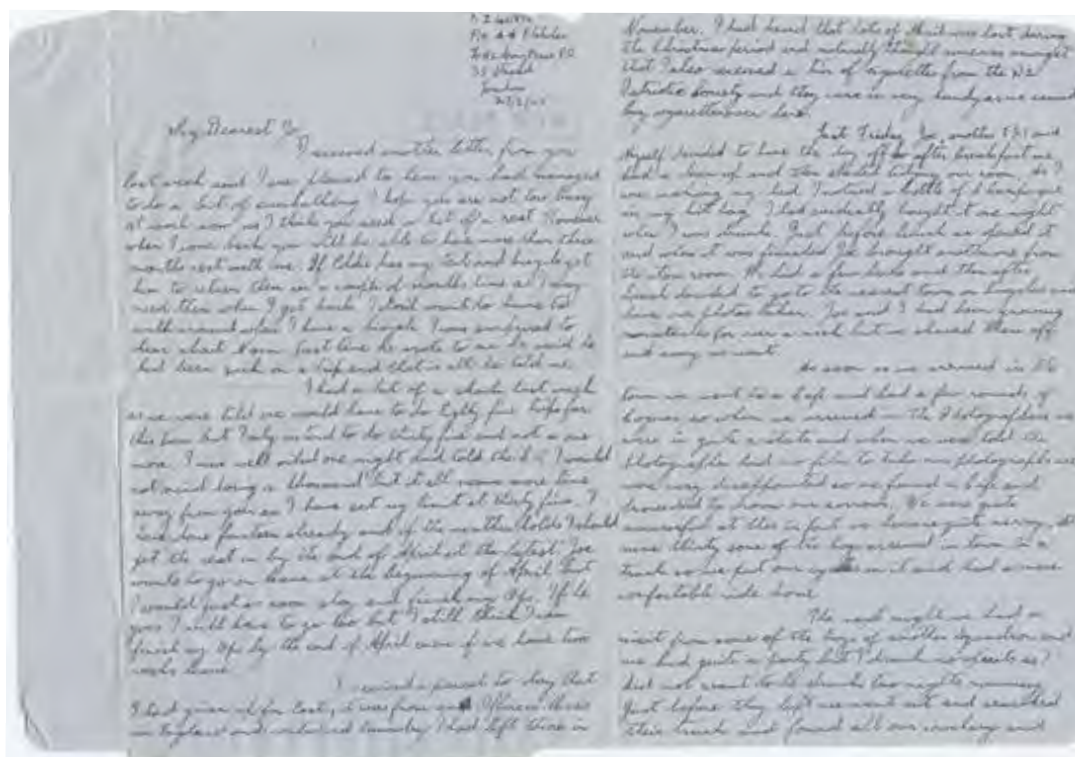 My Dearest
I received another letter from you
last week and I am pleased to hear you have managed
to do a bit of sunbathing I hope you are not too busy
at work now as I think you need a bit of a rest However
when I come back you will be able to have more than three
months rest with me. If has my and bicycle get
him to return them in a couple of months time as I may
need them when I get back I don't want to have to
walk around when I have a bicycle I was surprised to
hear about last time he wrote to me he said he
had been sick on a trip and that is all he told me.
I had a bit of a shock last week
as we were told we would have to do eighty five trips for
this tour but I only intend to do thirty five and not a one
more. I was well oiled one night and told the I would
not mind doing a thousand but it all means more time
away from you so I have set my limit at thirty five. I
have done fourteen already and if the weather holds I should
get the rest in by the end of April at the latest. Joe
wants to go on leave at the beginning of April but
I would just as soon stay and finish my Ops. If he
goes I will have to go too but I still think I can
finish my Ops by the end of April even if we have two
weeks leave.
I received a parcel to day that
I had given up for lost, it was from
in England and contained laundry I had left there in
November. I had heard that lots of Mail was lost during
the Christmas period and naturally thought
that I also received a tin of cigarettes from the NZ
Patriotic Society and they were in very handy as we cannot
buy cigarettes over here.
Last Friday Joe, another and
Myself decided to have the day off so after breakfast we
had a clean up and then started tidying our room. As I
was making my bed I noticed a bottle of Champagne
in my kit bag. I had evidently bought it one night
when I was drunk. Just before lunch we opened it
and when it was finished Joe brought another one from
the room. We had a few and then after
lunch decided to go to the nearest town on bicycles and
have our photos taken. Joe and I had been growing
moustaches for over a week but we shaved them off
and away we went.
As soon as we arrived in the
town we went to a Cafe and had a few rounds of
Cognac so when we arrived at the Photographers we
were in quite a state and when we were told the
Photographer had no film to take our photographs we
were very disappointed so we found a Cafe and
proceeded to drown our sorrows. We were quite
successful at this in fact we became quite merry. At
nine thirty some of the boys arrived in town in a
truck so we put our on it and had a more
comfortable ride home.
The next night we had a
visit from some of the boys of another Squadron and
we had quite a party but I drank no spirits as I
did not want to be drunk two nights running.
Just before they left we went out and searched
their truck and found all our crockery and